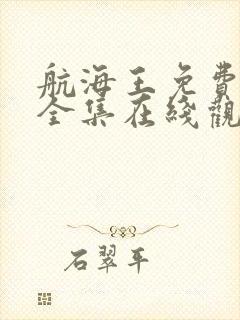 航海王免費
全集在綫觀
石翠平